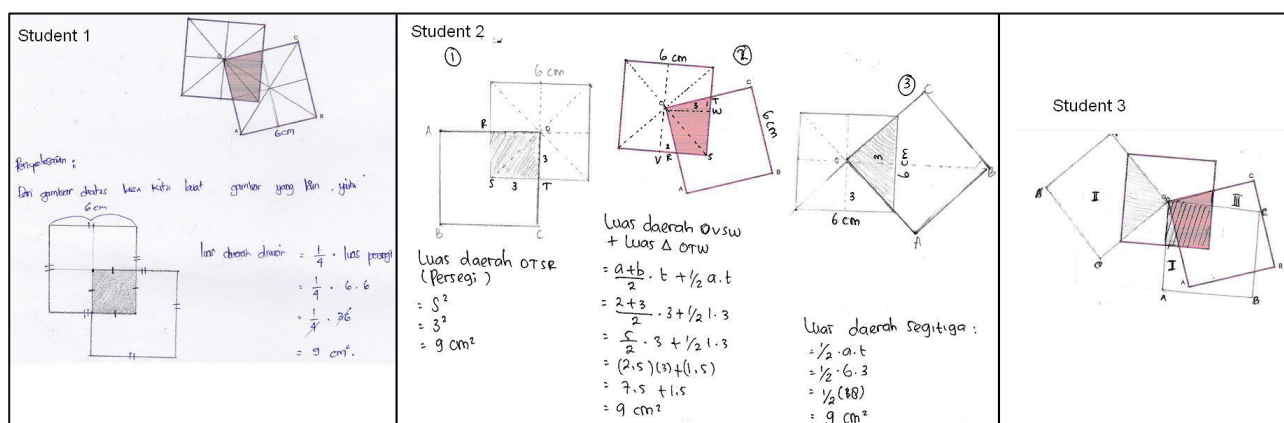 Student 1
O
C
A
B
6cm
Penyelesaian :
Dari gambar diatas bisa kita buat gambar yang lain, yaitu
6cm
luas daerah diarsir = 1/4 · luas persegi
= 1/4 · 6.6
= 1/4 · 36
= 9 cm².
Student 2
①
6 cm
A
R
O
3
S
3
T
B
C
Luas daerah OTSR
(Persegi)
= S²
= 3²
= 9 cm²
②
6 cm
C
O
3
1
T
W
6 cm
1
2
V
R
S
B
A
Luas daerah OVSW
+ Luas Δ OTW
= a+b/2 . t + 1/2 a.t
= 2+3/2 . 3 + 1/2 1.3
= 5/2 . 3 + 1/2 1.3
= (2,5)(3)+(1,5)
= 7,5 + 1,5
= 9 cm²
③
C
O
3
6 cm
B
3
6 cm
A
Luas daerah segitiga :
= 1/2 . a.t
= 1/2 . 6.3
= 1/2 (18)
= 9 cm²
Student 3
B
II
C
III
C
I
A
B
A
B